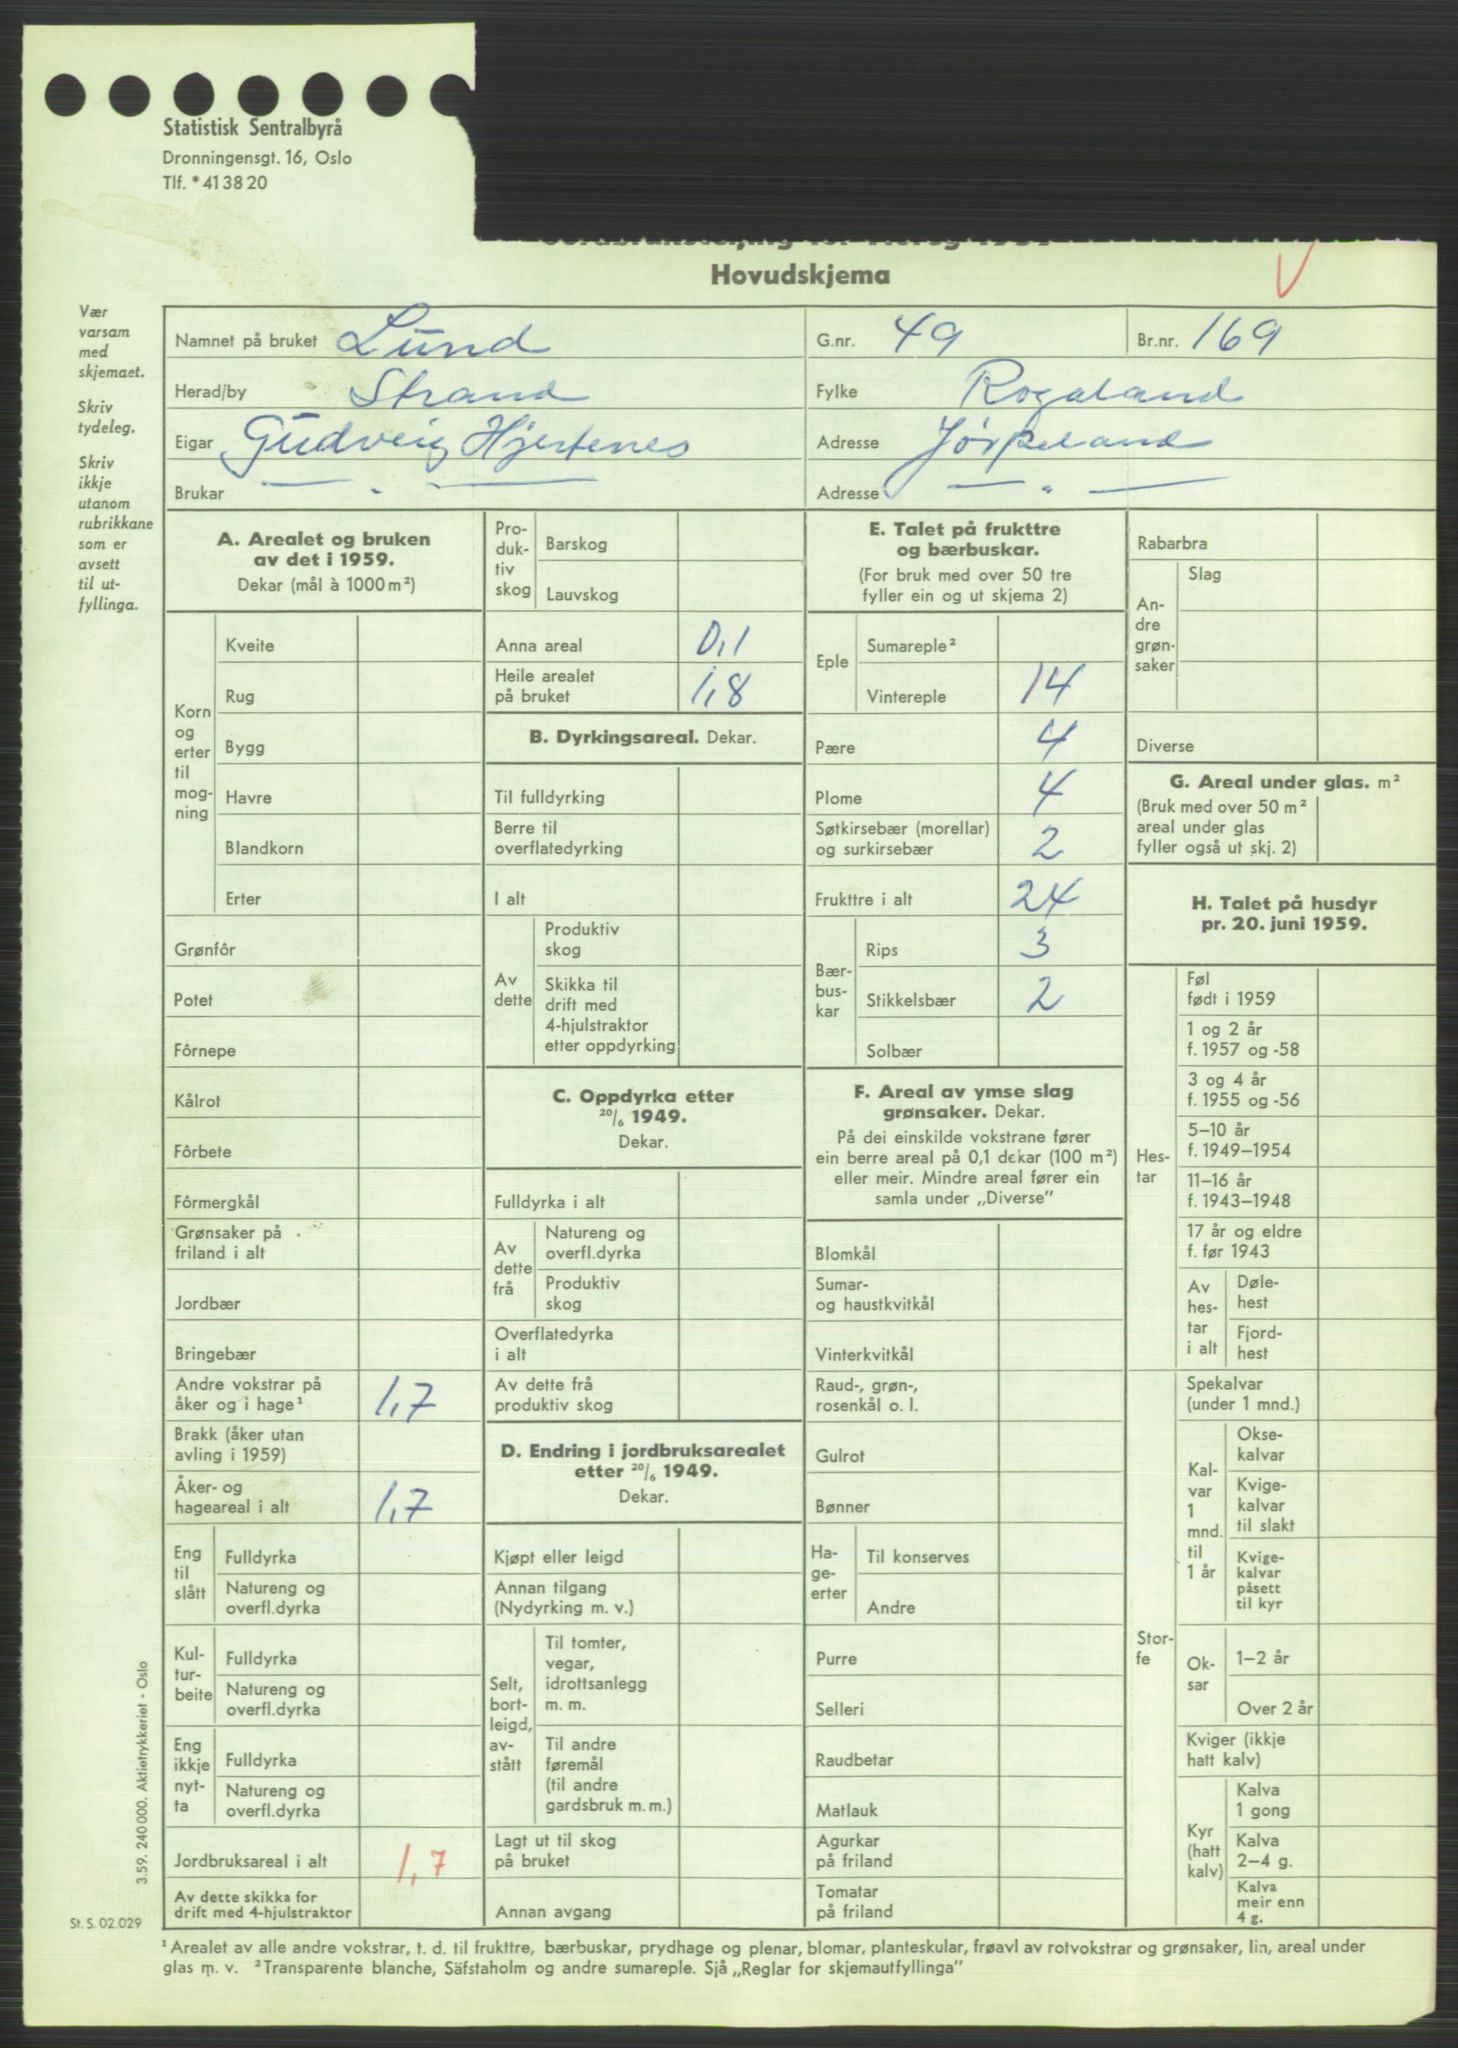 Statistisk Sentralbyrå
Dronningensgt. 16, Oslo
Tlf. * 41 38 20
Hovudskjema
Vær
varsam
med
skjemaet.
Skriv
tydeleg.
Skriv
ikkje
utanom
rubrikkane
som er
avsett
til ut-
fyllinga.
Namnet på bruket Lund G.nr. 49 Br.nr. 169
Herad/by Strand Fylke Rogaland
Eigar Gudveig Hjertenes Adresse Jørpeland
Brukar — " — Adresse — " —
A. Arealet og bruken
av det i 1959.
Dekar (mål à 1000 m²)
Korn
og
erter
til
mog-
ning
Kveite
Rug
Bygg
Havre
Blandkorn
Erter
Grønfôr
Potet
Fôrnepe
Kålrot
Fôrbete
Fôrmergkål
Grønsaker på
friland i alt
Jordbær
Bringebær
Andre vokstrar på
åker og i hage¹ 1,7
Brakk (åker utan
avling i 1959)
Åker- og
hageareal i alt 1,7
Eng
til
slått
Fulldyrka
Natureng og
overfl.dyrka
Kul-
tur-
beite
Fulldyrka
Natureng og
overfl.dyrka
Eng
ikkje
nyt-
ta
Fulldyrka
Natureng og
overfl.dyrka
Jordbruksareal i alt 1,7
Av dette skikka for
drift med 4-hjulstraktor
Pro-
duk-
tiv
skog
Barskog
Lauvskog
Anna areal 0,1
Heile arealet
på bruket 1,8
B. Dyrkingsareal. Dekar.
Til fulldyrking
Berre til
overflatedyrking
I alt
Av
dette
Produktiv
skog
Skikka til
drift med
4-hjulstraktor
etter oppdyrking
C. Oppdyrka etter
20/6 1949.
Dekar.
Fulldyrka i alt
Av
dette
frå
Natureng og
overfl.dyrka
Produktiv
skog
Overflatedyrka
i alt
Av dette frå
produktiv skog
D. Endring i jordbruksarealet
etter 20/6 1949.
Dekar.
Kjøpt eller leigd
Annan tilgang
(Nydyrking m. v.)
Selt,
bort-
leigd,
av-
stått
Til tomter,
vegar,
idrottsanlegg
m. m.
Til andre
føremål
(til andre
gardsbruk m. m.)
Lagt ut til skog
på bruket
Annan avgang
E. Talet på frukttre
og bærbuskar.
(For bruk med over 50 tre
fyller ein og ut skjema 2)
Eple
Sumareple²
Vintereple 14
Pære 4
Plome 4
Søtkirsebær (morellar)
og surkirsebær 2
Frukttre i alt 24
Bær-
bus-
kar
Rips 3
Stikkelsbær 2
Solbær
F. Areal av ymse slag
grønsaker. Dekar.
På dei einskilde vokstrane fører
ein berre areal på 0,1 dekar (100 m²)
eller meir. Mindre areal fører ein
samla under „Diverse”
Blomkål
Sumar-
og haustkvitkål
Vinterkvitkål
Raud-, grøn-,
rosenkål o. l.
Gulrot
Bønner
Ha-
ge-
erter
Til konserves
Andre
Purre
Selleri
Raudbetar
Matlauk
Agurkar
på friland
Tomatar
på friland
Rabarbra
An-
dre
grøn-
saker
Slag
Diverse
G. Areal under glas. m²
(Bruk med over 50 m²
areal under glas
fyller også ut skj. 2)
H. Talet på husdyr
pr. 20. juni 1959.
Hes-
tar
Føl
født i 1959
1 og 2 år
f. 1957 og -58
3 og 4 år
f. 1955 og -56
5–10 år
f. 1949–1954
11–16 år
f. 1943–1948
17 år og eldre
f. før 1943
Av
hes-
tar
i alt
Døle-
hest
Fjord-
hest
Stor-
fe
Spekalvar
(under 1 mnd.)
Kal-
var
1
mnd.
til
1 år
Okse-
kalvar
Kvige-
kalvar
til slakt
Kvige-
kalvar
påsett
til kyr
Ok-
sar
1–2 år
Over 2 år
Kviger (ikkje
hatt kalv)
Kyr
(hatt
kalv)
Kalva
1 gong
Kalva
2–4 g.
Kalva
meir enn
4 g.
3.59. 240 000. Aktietrykkeriet - Oslo
St. S. 02.029
¹ Arealet av alle andre vokstrar, t. d. til frukttre, bærbuskar, prydhage og plenar, blomar, planteskular, frøavl av rotvokstrar og grønsaker, lin, areal under
glas m. v. ² Transparente blanche, Säfstaholm og andre sumareple. Sjå „Reglar for skjemautfyllinga”